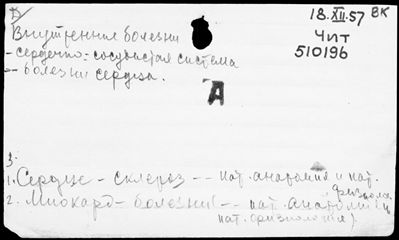 18.XII.57 ВК
Внутренние болезни
Чит
510196
- сердечно-сосудистая система
- болезни сердца.
А
3.
1. Сердце - склероз -- пат. анатомия и пат. физиол.
2. Миокард - болезни -- пат. анатомия и
пат. физиология)